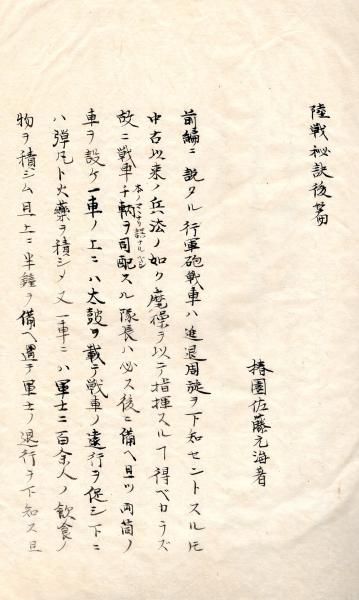 陸戦秘訣後篇
椿園佐藤元海著
前編ニ説タル行軍砲戦車ハ進退周旋ヲ下知セントスルニ
中古以来ノ兵法ノ如ク麾ヲ以テ指揮スルヿ得ベカラズ
故ニ戦車千輌ヲ司配スル隊長ハ必ス後ニ備ヘ且ツ両箇ノ
本ノマヽ
車ヲ設ケ一車ノ上ニハ太鼓ヲ載テ戦車ノ遠行ヲ促シ下ニ
ハ弾丸ト火薬ヲ積シメ又一車ニハ軍士二百余人ノ飲食ノ
物ヲ積シム且上ニ半鐘ヲ備ヘ置テ軍士ノ退行ヲ下知ス且